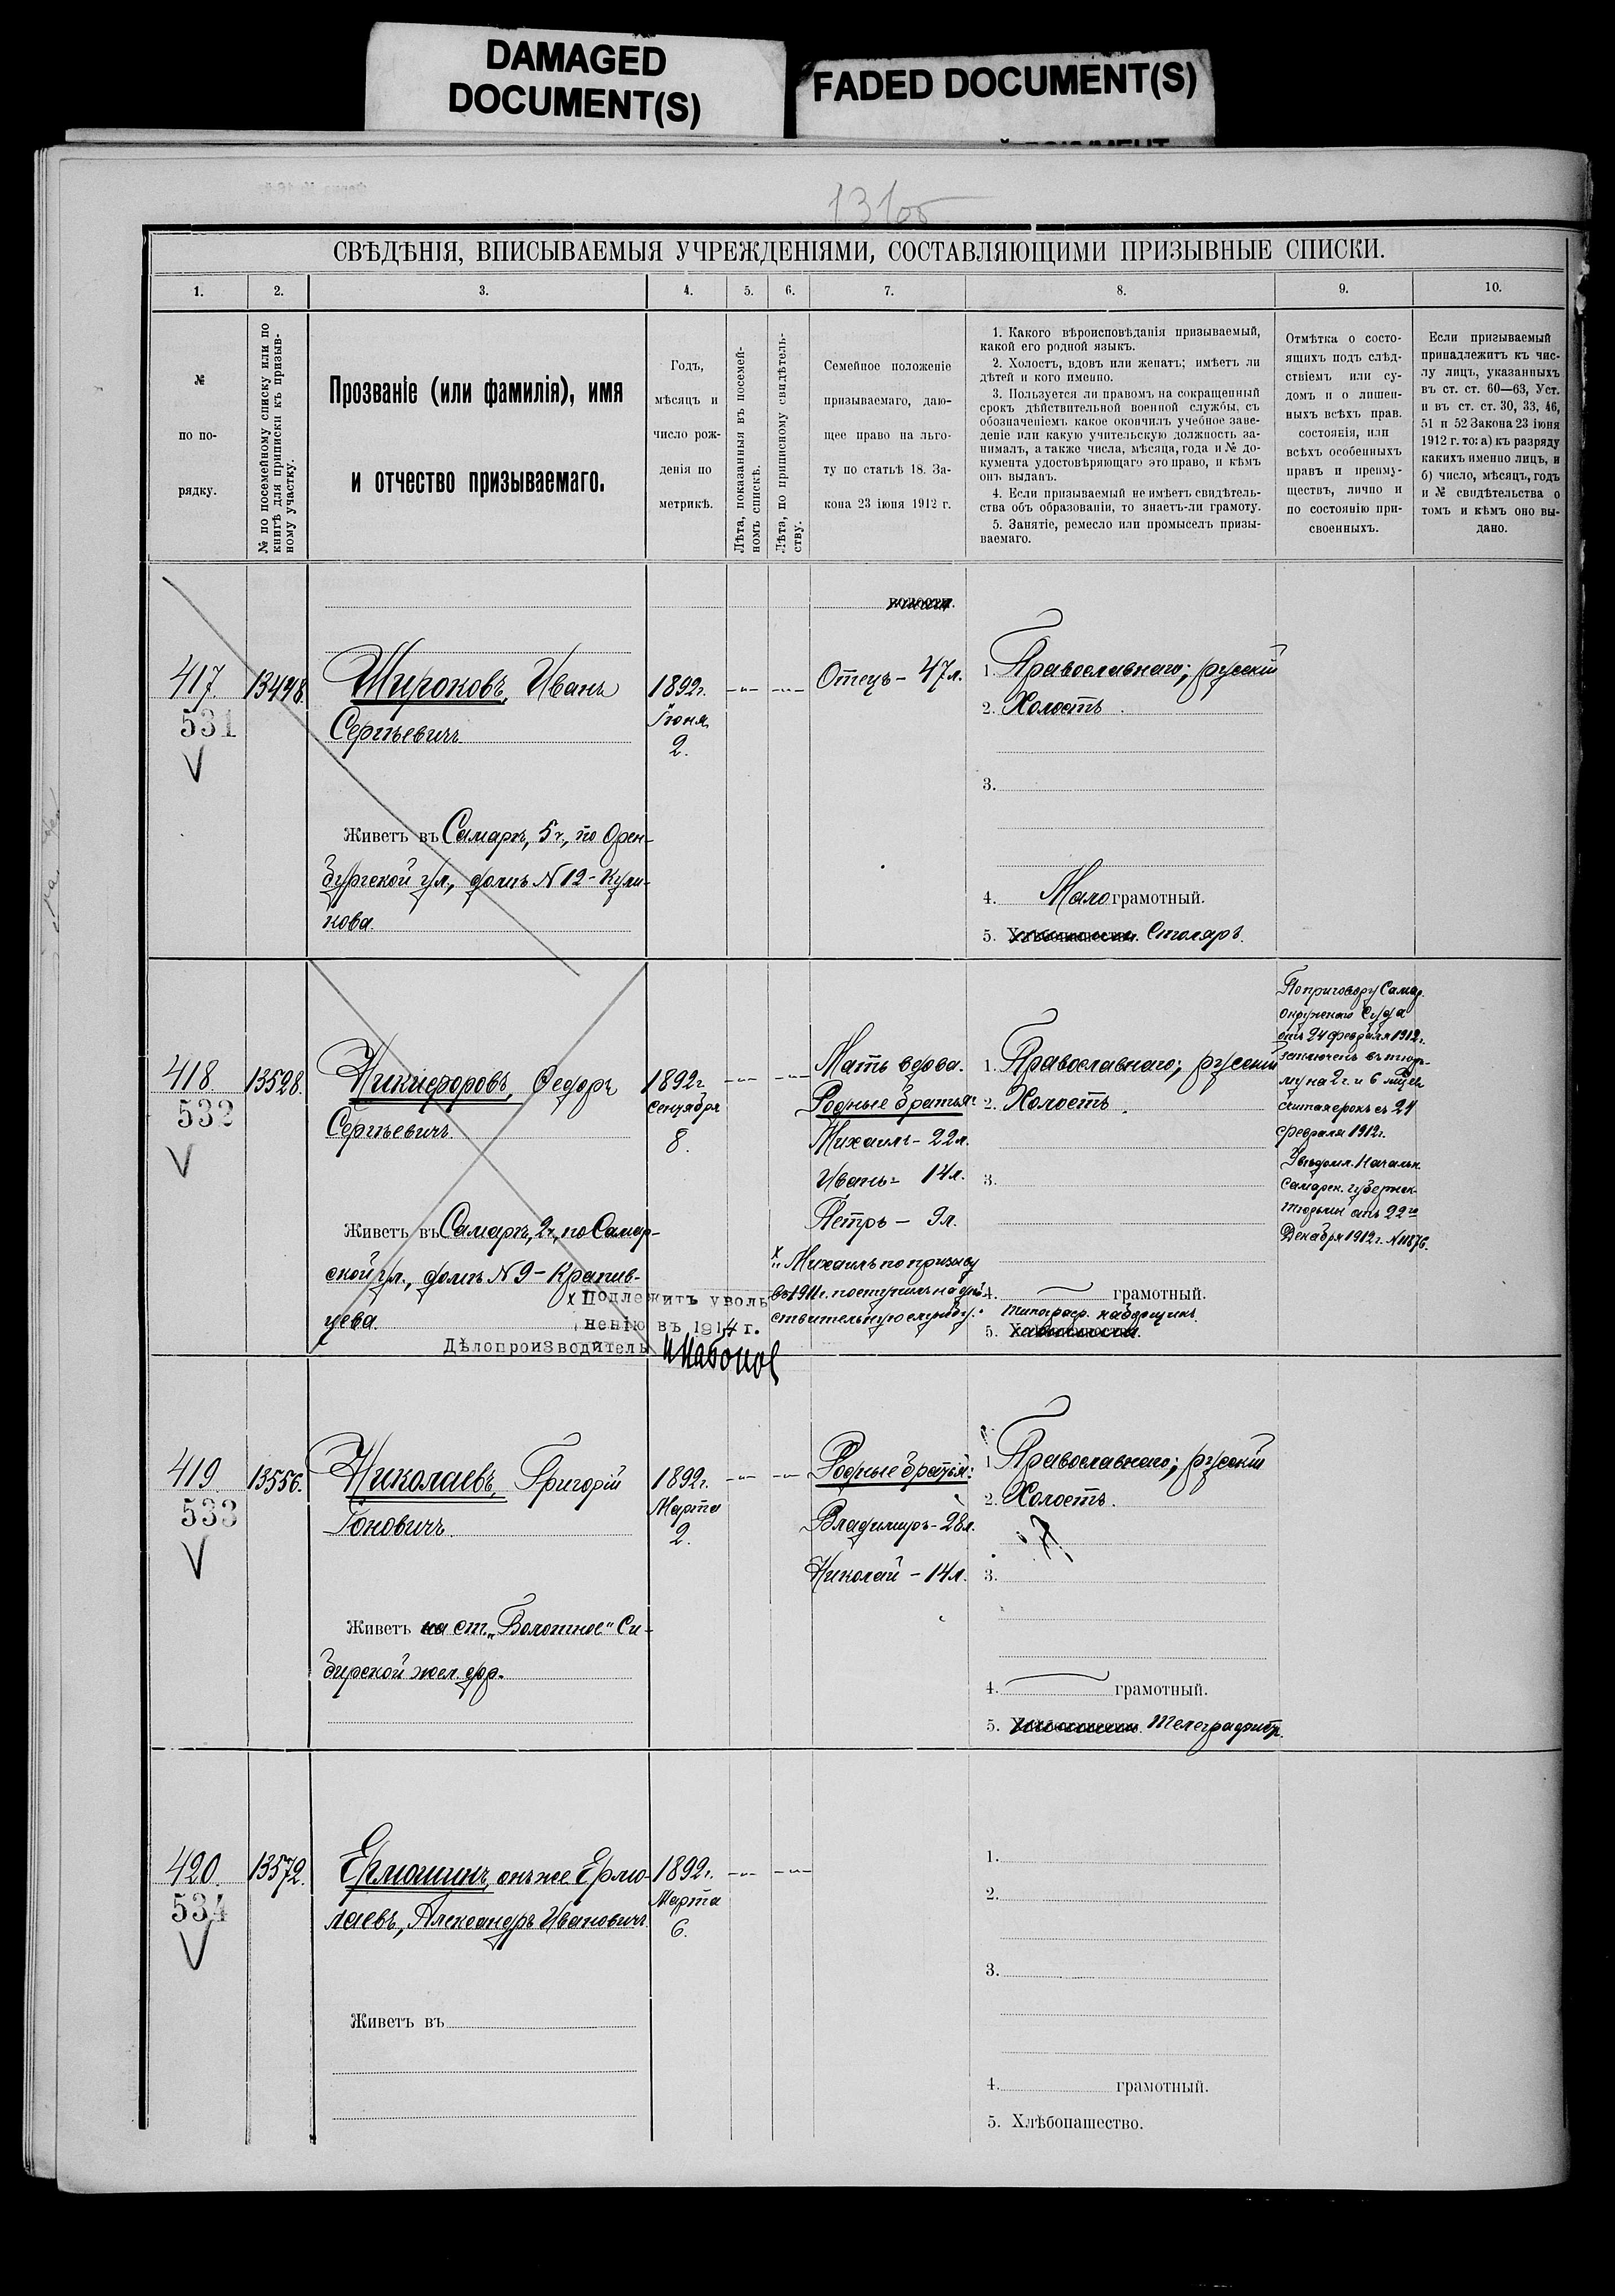 DAMAGED
DOCUMENT(S)
FADED DOCUMENT(S)
131об
СВѢДѢНІЯ, ВПИСЫВАЕМЫЯ УЧРЕЖДЕНІЯМИ, СОСТАВЛЯЮЩИМИ ПРИЗЫВНЫЕ СПИСКИ.
1. 2. 3. 4. 5. 6. 7. 8. 9. 10.
№
по по-
рядку.
№ по посемейному списку или по
книгѣ для приписки къ призыв-
ному участку.
Прозваніе (или фамилія), имя
и отчество призываемаго.
Годъ,
мѣсяцъ и
число рож-
денія по
метрикѣ.
Лѣта, показанныя въ посемей-
номъ спискѣ.
Лѣта, по приписному свидѣтель-
ству.
Семейное положеніе
призываемаго, даю-
щее право на льго-
ту по статьѣ 18. За-
кона 23 іюня 1912 г.
1. Какого вѣроисповѣданія призываемый,
какой его родной языкъ.
2. Холостъ, вдовъ или женатъ; имѣетъ ли
дѣтей и кого именно.
3. Пользуется ли правомъ на сокращенный
срокъ дѣйствительной военной службы, съ
обозначеніемъ какое окончилъ учебное заве-
деніе или какую учительскую должность за-
нималъ, а также числа, мѣсяца, года и № до-
кумента удостовѣряющаго это право, и кѣмъ
онъ выданъ.
4. Если призываемый не имѣетъ свидѣтель-
ства объ образованіи, то знаетъ-ли грамоту.
5. Занятіе, ремесло или промыселъ призы-
ваемаго.
Отмѣтка о состо-
ящихъ подъ слѣд-
ствіемъ или су-
домъ и о лишен-
ныхъ всѣхъ прав.
состоянія, или
всѣхъ особенныхъ
правъ и преиму-
ществъ, лично и
по состоянію при-
своенныхъ.
Если призываемый
принадлежитъ къ чис-
лу лицъ, указанныхъ
въ ст. ст. 60—63, Уст.
и въ ст. ст. 30, 33, 46,
51 и 52 Закона 23 іюня
1912 г. то: а) къ разряду
какихъ именно лицъ, и
б) число, мѣсяцъ, годъ
и № свидѣтельства о
томъ и кѣмъ оно вы-
дано.
волости.
417. 13498. Широковъ, Иванъ 1892г. Отецъ - 47 л. 1. Православнаго; русскій
531 Сергѣевичъ Іюня 2. Холостъ.
V 2.
3.
Живетъ въ Самарѣ, 5 ч., по Орен-
бургской ул., домъ N 12 - Кули-
кова.
4. Мало грамотный.
5. Хлѣбопашество. Столяръ.
418. 13528. Никифоровъ, Федоръ 1892г. Мать вдова. 1. Православнаго; русскій
532 Сергѣевичъ. Сентября Родные братья: 2. Холостъ.
V 8. Михаилъ - 22 л.
Иванъ - 14 л. 3.
Петръ - 9 л.
Живетъ въ Самарѣ, 2 ч., по Самар-
ской ул., домъ N 9 - Крапив-
цева.
х Михаилъ по призыву
въ 1911 г. поступилъ на дѣй-
ствительную службу.
х Подлежитъ уволь
ненію въ 1914 г.
Дѣлопроизводитель
4. грамотный.
типограф. наборщикъ
5. Хлѣбопашество.
По приговору Самар.
Окружнаго Суда
отъ 24 февраля 1912 г.
заключенъ въ тюрь-
му на 2 г. и 6 мѣсяц.
считая срокъ съ 24
февраля 1912 г.
Увѣдомл. Начальн.
Самарск. губернск.
тюрьмы отъ 22го
Декабря 1912 г. N 11876.
419. 13556. Николаевъ, Григорій 1892г. Родные братья: 1. Православнаго; русскій
533 Іоновичъ. Марта Владиміръ - 28 л. 2. Холостъ.
V 2. Николай - 14 л. 3.
Живетъ на ст. „Болотное" Си-
бирской жел. дор.
4. грамотный.
5. Хлѣбопашество. Телеграфистъ.
420. 13572. Ермошинъ, онъ же Ермо- 1892г. 1.
534 лаевъ, Александръ Ивановичъ. Марта 2.
V 6.
3.
Живетъ въ
4. грамотный.
5. Хлѣбопашество.